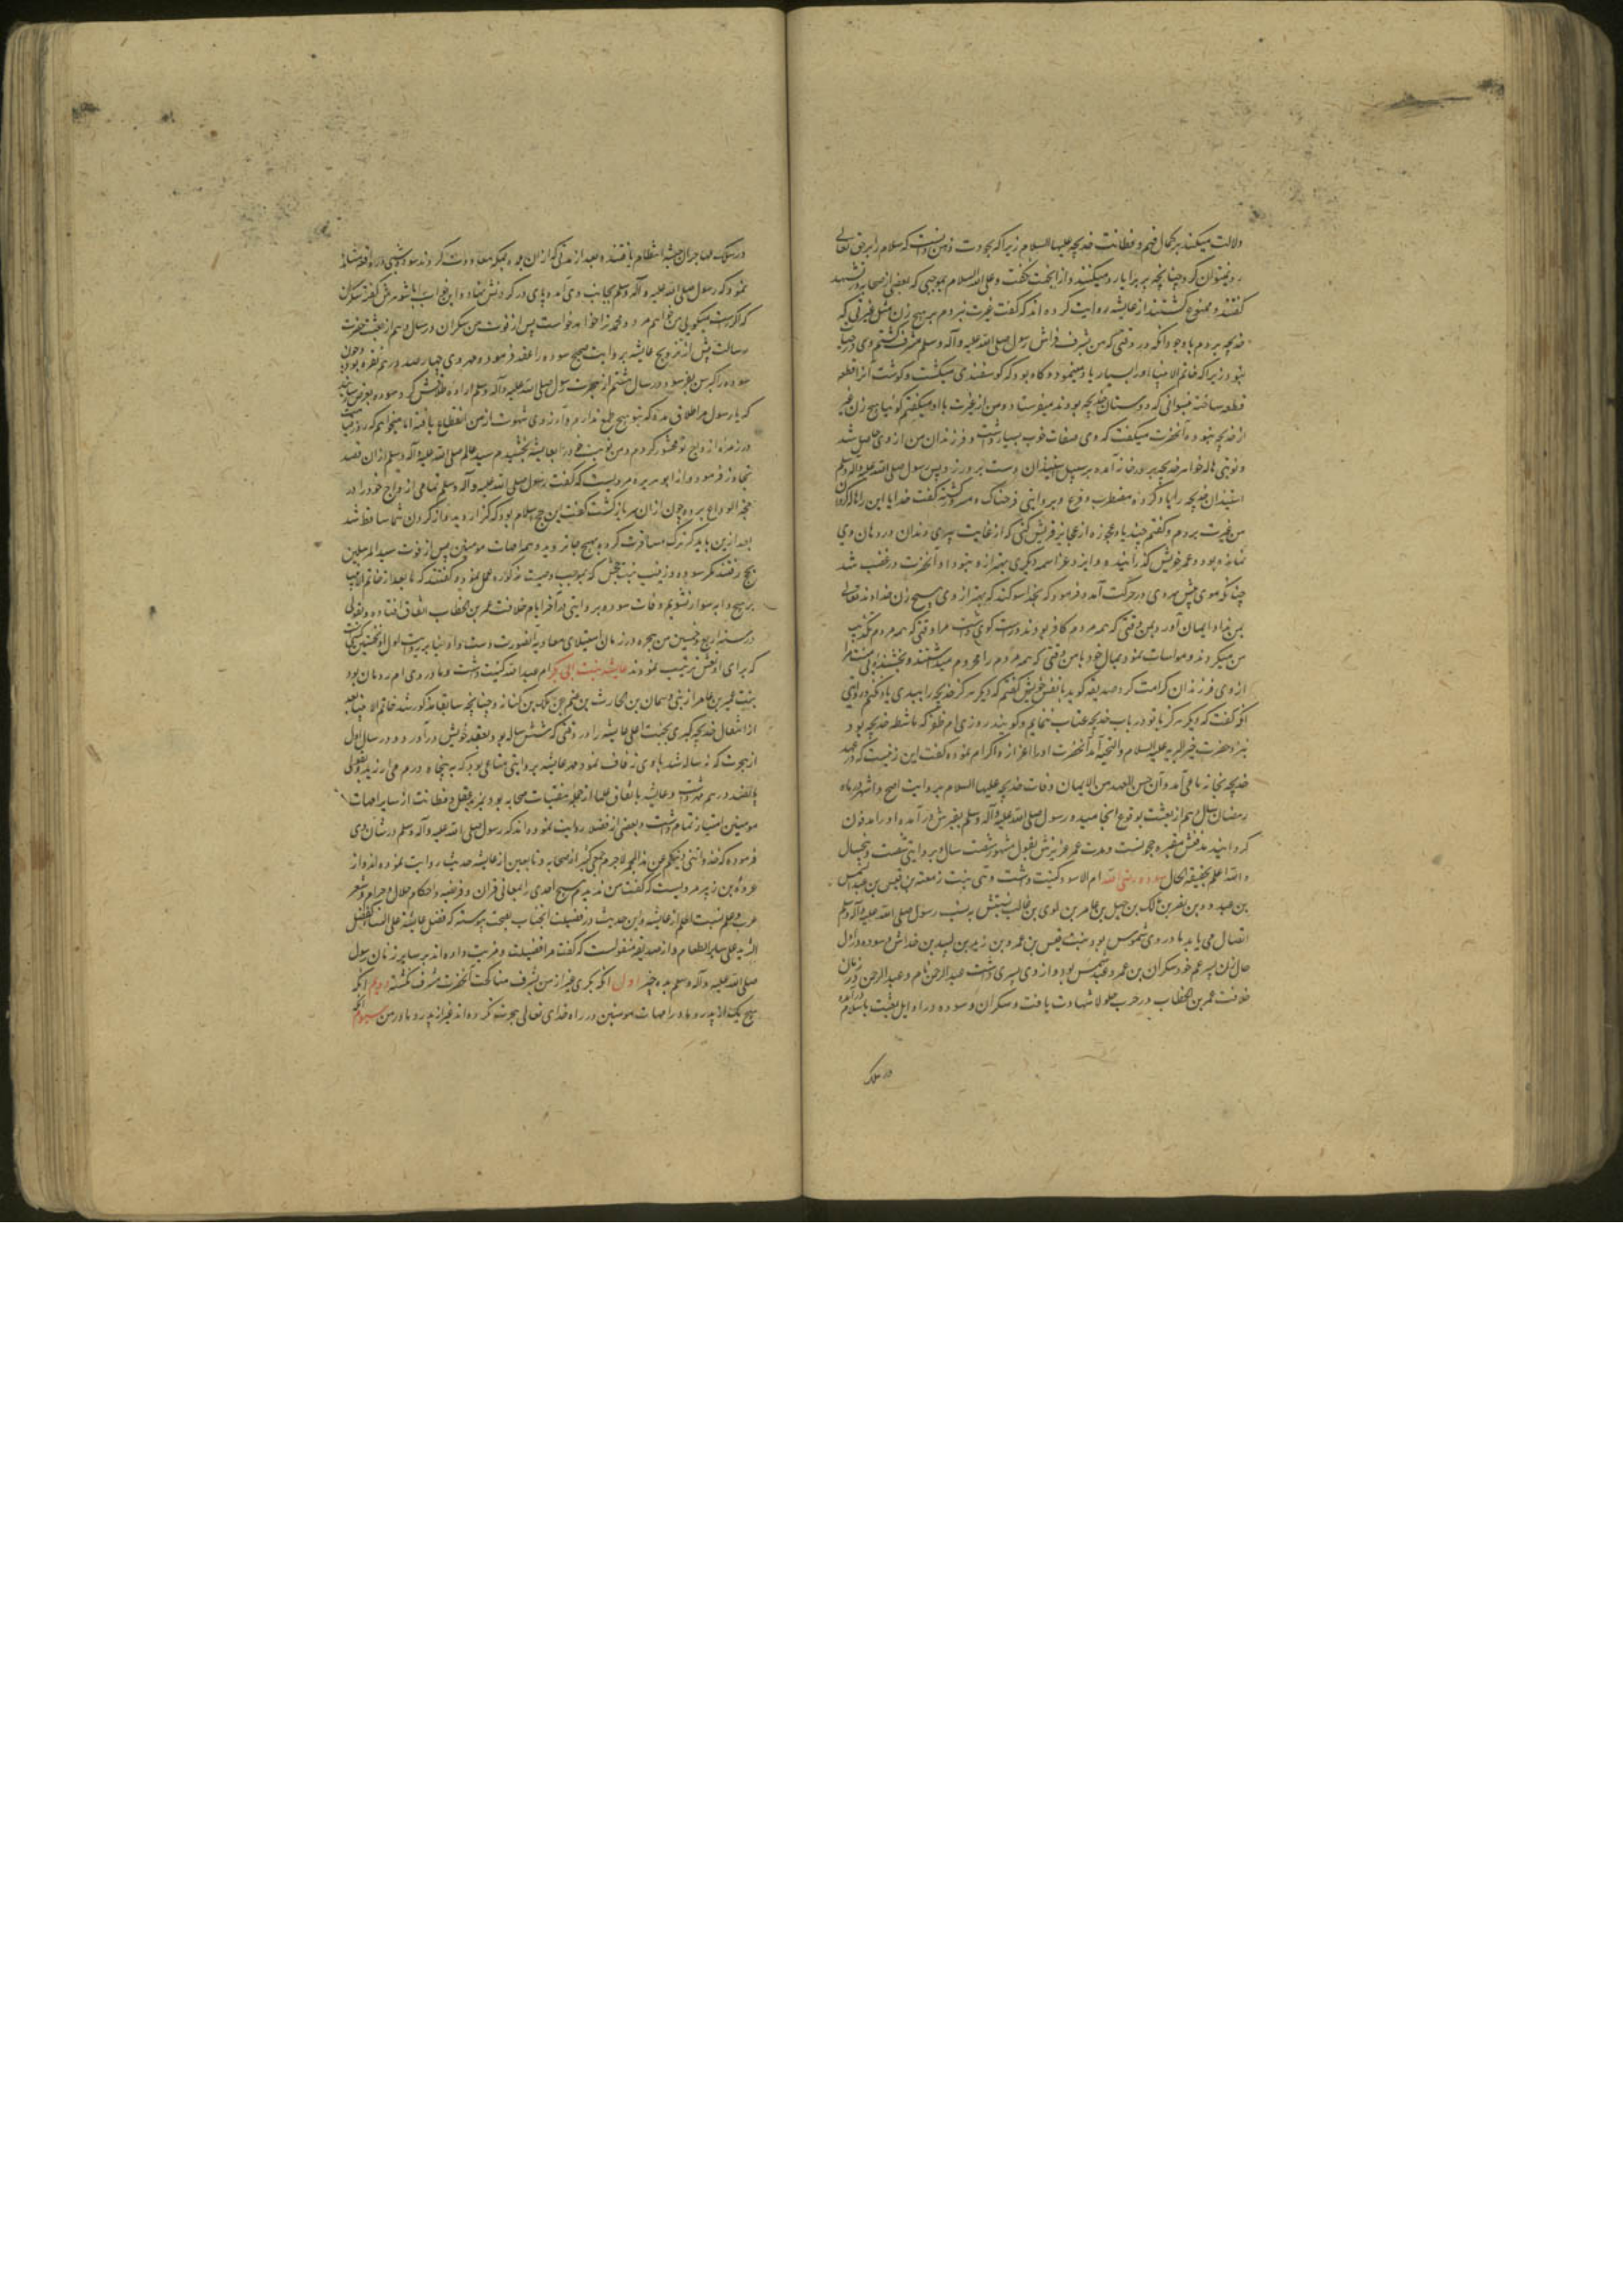 دلالت میکند بر کمال فهم و فطانت خدیجه علیها السلام زیرا که بجودت ذهن دانست که سلام را بر حق تعالی
رد نتوان کرد چنانچه بر برایا رد میکنند و از اینجهت نگفت و علی الله السلام بموجبی که بعضی از صحابه در تشهد
گفتند و ممنوع گشتند از عایشه روایت کرده اند که گفت غیرت نبردم بر هیچ زن مثل غیرتی که
خدیجه بردم با وجود آنکه در وقتی که من بشرف فراش رسول صلی الله علیه و آله وسلم مشرف گشتم وی در حیات
نبود زیرا که خاتم الانبیا او را بسیار یاد مینمود و گاه بود که گوسفندی میکشت و گوشت آنرا قطعه
قطعه ساخته بنسوانی که دوستان خدیجه بودند میفرستاد و من از غیرت با او میگفتم گوئیا هیچ زن غیر
از خدیجه نبوده آنحضرت میگفت که وی صفات خوب بسیار داشت و فرزندان من از وی حاصل شد
و نوبتی هاله خواهر خدیجه بدر خانه آمده بر سبیل استیذان دست بر در زد پس رسول صلی الله علیه و آله وسلم
استیذان خدیجه را یاد کرده مضطرب و فزع و بروایتی فرحناک و مسرور گشته گفت خدایا این را هاله گردان
من غیرت بردم و گفتم چند یاد عجوزه از عجایز قریش کنی که از غایت پیری دندان در دهان وی
نمانده بود و عمر خویش گذرانید و ایزد عز اسمه دیگری بهتر از و بتو داد آنحضرت در غضب شد
چنانکه موی پیش سر وی در حرکت آمد و فرمود که بخدا سوگند که بهتر از وی هیچ زن خداوند تعالی
بمن نداد ایمان آورد بمن وقتی که همه مردم کافر بودند و راست گوی داشت مرا وقتی که همه مردم تکذیب
من میکردند و مواسات نمود بمال خود با من وقتی که همه مردم را محروم میداشتند و بخشنده بی منت مرا
از وی فرزندان کرامت کرد صدیقه گوید با نفس خویش گفتم که دیگر هرگز خدیجه را ببدی یاد نکنم و روایتی
آنکه گفت که دیگر هرگز با تو در باب خدیجه عتاب ننمایم و گویند روزی ام ظفر که ماشطه خدیجه بود
نزد حضرت خیر البریه علیه السلام و التحیه آمد آنحضرت او را اعزاز و اکرام نموده گفت این زنیست که در عهد
خدیجه بخانه ما می آمد و ان حسن العهد من الایمان وفات خدیجه علیها السلام بروایت اصح و اشهر در ماه
رمضان سال دهم از بعثت بوقوع انجامید و رسول صلی الله علیه و آله وسلم بقبرش در آمده او را مدفون
گردانید مدفنش مقبره حجونست و مدت عمر عزیزش بقول مشهور شصت سال و بروایتی شصت و پنجسال
و الله اعلم بحقیقة الحال سوده رضی الله ام الاسود کنیت داشت و هی بنت زمعة بن قیس بن عبد الشمس
بن عبد ود بن نصر بن مالک بن حسل بن عامر بن لوی بن غالب نسبتش بنسب رسول صلی الله علیه و آله وسلم
اتصال می یابد مادر وی شموس بود بنت قیس بن عمرو بن زید بن لبید بن خداش و سوده در اول
حال زن پسر عم خود سکران بن عمرو بن عبد شمس بود و از وی پسری داشت عبد الرحمن نام و عبد الرحمن در زمان
خلافت عمر بن الخطاب در حرب جلولا شهادت یافت و سکران و سوده در اوایل بعثت باسلام در آمده
در سلک
در سلک مهاجران حبشه انتظام یافتند و بعد از مدتی که از آن بمکه معاودت کردند سوده شبی در واقعه مشاهده
نمود که رسول صلی الله علیه و آله وسلم بجانب وی آمده پای در گردنش نهاد و این خواب با شوهرش گفته سکران
که اگر راست میگویی من خواهم مرد و محمد ترا خواهد خواست پس از فوت حسن سکران در سال دهم از بعثت حضرت
رسالت پیش از تزویج عایشه بروایت صحیح سوده را عقد فرموده مهر وی چهار صد درهم نقره بود و چون
سوده را کبر سن بفرسود در سال هشتم از هجرت رسول صلی الله علیه و آله وسلم اراده طلاقش کرد سوده بعرض رسانید
که یا رسول مرا طلاق مده که بتو هیچ طمع ندارم و آرزوی شهوت از من انقطاع یافته اما میخواهم که روز قیامت
در زمره ازواج تو محشور گردم و من نوبت خود را بعایشه بخشیدم سید عالم صلی الله علیه و آله وسلم از آن قصد
تجاوز فرمود و از ابو هریره مرویست که گفت رسول صلی الله علیه و آله وسلم تمامی ازواج خود را در
حجة الوداع برد و چون از آن سفر بازگشت گفت این حج اسلام بود که گزاردید و از گردن شما ساقط شد
بعد ازین باید که ترک مسافرت کرده بهیچ جا نروید و همه امهات مومنین پس از فوت سید المرسلین
بحج رفتند مگر سوده و زینب بنت جحش که بموجب وصیت مذکوره عمل نموده گفتند که ما بعد از خاتم الانبیا
بر هیچ دابه سوار نشویم وفات سوده بروایتی در آخر ایام خلافت عمر بن الخطاب اتفاق افتاده و بقولی
در سنه اربع و خمسین من هجره در زمان استیلای معاویه آنصورت دست داد و بنا بر روایت اول او نخستین کسیست
که برای او نعش ترتیب نمودند عایشه بنت ابی بکر ام عبد الله کنیت داشت و مادر وی ام رومان بود
بنت عمیر بن عامر از بنی دهمان بن الحارث بن غنم بن مالک بن کنانه و چنانچه سابقا مذکور شد خاتم الانبیا بعد
از انتقال خدیجه کبری بجنت اعلی عایشه را در وقتی که شش ساله بود بعقد خویش در آورد و در سال اول
از هجرت که نه ساله شد با وی زفاف نمود مهر عایشه بروایتی متاعی بود که به پنجاه درم می ارزید و بقولی
پانصد درهم داشت و عایشه باتفاق علما از جمله مفتیات صحابه بود و بمزید عقل و فطانت از سایر امهات
مومنین امتیاز تمام داشت و بعضی از فضلا روایت نموده اند که رسول صلی الله علیه و آله وسلم در شان وی
فرموده که خذوا ثلثی دینکم عن هذه الحمیرا لاجرم جمعی کثیر از صحابه و تابعین از عایشه حدیث روایت نموده اند و از
عروة بن زبیر مرویست که گفت من ندیدم هیچ احدی را بمعانی قران و فریضه و احکام حلال و حرام و شعر
عرب و علم نسبت اعلم از عایشه و این حدیث در فضیلت آنجناب بصحت پیوسته که فضل عایشه علی النساء کفضل
الثرید علی سایر الطعام و از صدیقه منقولست که گفت مرا فضیلت و مزیت داده اند بر سایر زنان رسول
صلی الله علیه و آله وسلم بده چیز اول آنکه بکری غیر از من بشرف مناکحت آنحضرت مشرف نگشته دویم آنکه
هیچ یک از پدر و مادر امهات مومنین در راه خدای تعالی هجرت نکرده اند غیر از پدر و مادر من سیوم آنکه